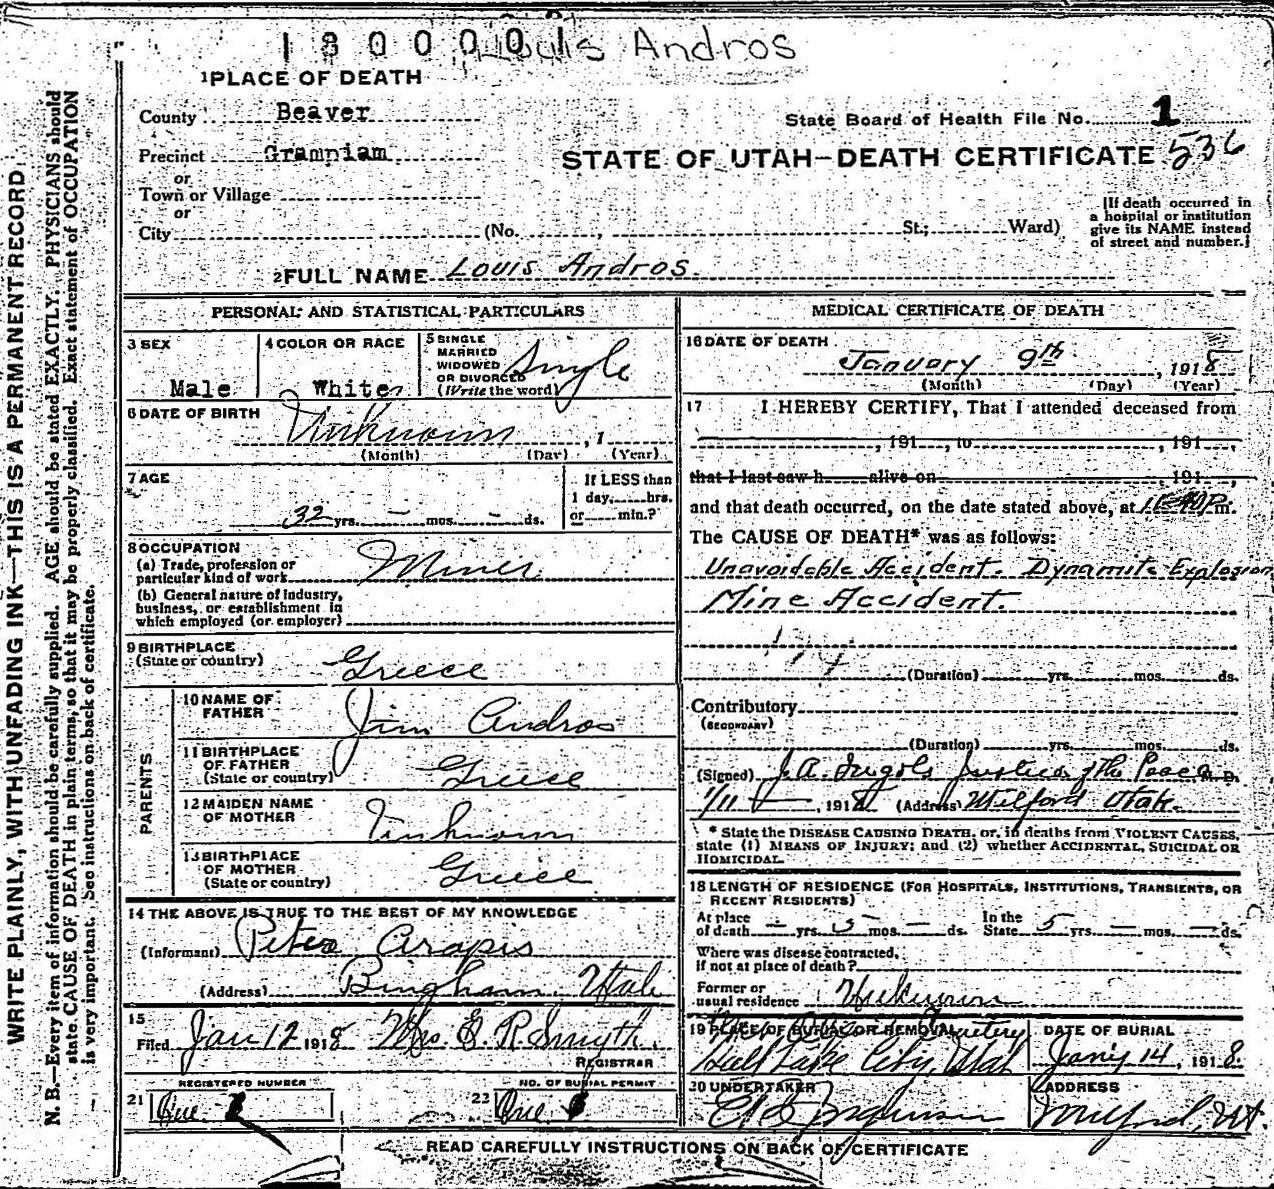 1800001 Louis Andros
1 PLACE OF DEATH
County Beaver
State Board of Health File No. 1
Precinct Grampiam
STATE OF UTAH—DEATH CERTIFICATE 536
or
Town or Village
or
City (No. , St.; Ward)
[If death occurred in
a hospital or institution
give its NAME instead
of street and number.]
2 FULL NAME Louis Andros.
PERSONAL AND STATISTICAL PARTICULARS
3 SEX
Male
4 COLOR OR RACE
White
5 SINGLE
MARRIED
WIDOWED
OR DIVORCED
(Write the word)
Single
6 DATE OF BIRTH
Unknown , 1
(Month) (Day) (Year)
7 AGE
32 yrs. — mos. — ds.
If LESS than
1 day, hrs.
or min.?
8 OCCUPATION
(a) Trade, profession or
particular kind of work
Miner
(b) General nature of industry,
business, or establishment in
which employed (or employer)
9 BIRTHPLACE
(State or country)
Greece
PARENTS
10 NAME OF
FATHER
Jim Andros
11 BIRTHPLACE
OF FATHER
(State or country)
Greese
12 MAIDEN NAME
OF MOTHER
Unknown
13 BIRTHPLACE
OF MOTHER
(State or country)
Greece
14 THE ABOVE IS TRUE TO THE BEST OF MY KNOWLEDGE
(Informant) Peter Arapis
(Address) Bingham Utah
15
Filed Jan 12 1918 Mrs. E. R. Smyth.
REGISTRAR
REGISTERED NUMBER
21 One
NO. OF BURIAL PERMIT
22 One
MEDICAL CERTIFICATE OF DEATH
16 DATE OF DEATH
January 9th , 1918
(Month) (Day) (Year)
17 I HEREBY CERTIFY, That I attended deceased from
, 191 , to , 191 ,
that I last saw h alive on , 191 ,
and that death occurred, on the date stated above, at m.
The CAUSE OF DEATH* was as follows:
Unavoidable Accident. Dynamite Explosion
Mine Accident.
(Duration) yrs. mos. ds.
Contributory
(SECONDARY)
(Duration) yrs. mos. ds.
(Signed) J. A. Ingols Justice of the Peace M. D.
1/11 , 1918 (Address) Milford Utah.
* State the DISEASE CAUSING DEATH, or, in deaths from VIOLENT CAUSES,
state (1) MEANS OF INJURY; and (2) whether ACCIDENTAL, SUICIDAL OR
HOMICIDAL.
18 LENGTH OF RESIDENCE (FOR HOSPITALS, INSTITUTIONS, TRANSIENTS, OR
RECENT RESIDENTS)
At place
of death — yrs. 5 mos. — ds.
In the
State 5 yrs. — mos. — ds.
Where was disease contracted,
if not at place of death?
Former or
usual residence Unknown
19 PLACE OF BURIAL OR REMOVAL
Salt Lake City, Utah
DATE OF BURIAL
Jany 14, 1918.
20 UNDERTAKER
ADDRESS
Milford, Ut.
READ CAREFULLY INSTRUCTIONS ON BACK OF CERTIFICATE
WRITE PLAINLY, WITH UNFADING INK—THIS IS A PERMANENT RECORD
N. B.—Every item of information should be carefully supplied. AGE should be stated EXACTLY. PHYSICIANS should
state CAUSE OF DEATH in plain terms, so that it may be properly classified. Exact statement of OCCUPATION
is very important. See instructions on back of certificate.